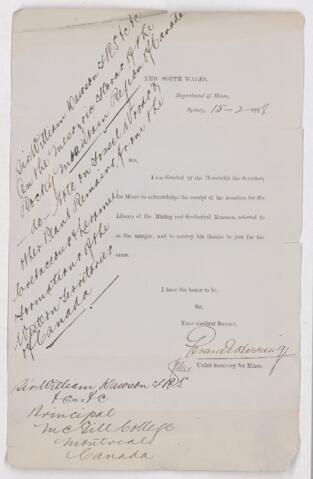 NEW SOUTH WALES,
Department of Mines,
Sydney, 15-2-1889
Sir William Dawson F.R.S. &c &c
On the Mesozoic Floras of the
Rocky Mountain Region of Canada
- do - Note on Fossil Woods &
other Plant Remains, from the
Cretaceous & Laramie
Formations of the
Western Territories
of Canada
Sir,
I am directed by the Honorable the Secretary
for Mines to acknowledge the receipt of the donation for the
Library of the Mining and Geological Museum, referred to
in the margin; and to convey his thanks to you for the
same.
I have the honor to be,
Sir,
Your obedient Servant,
Under Secretary for Mines.
Sir William Dawson F.R.S.
&c &c
Principal
McGill College
Montreal
Canada